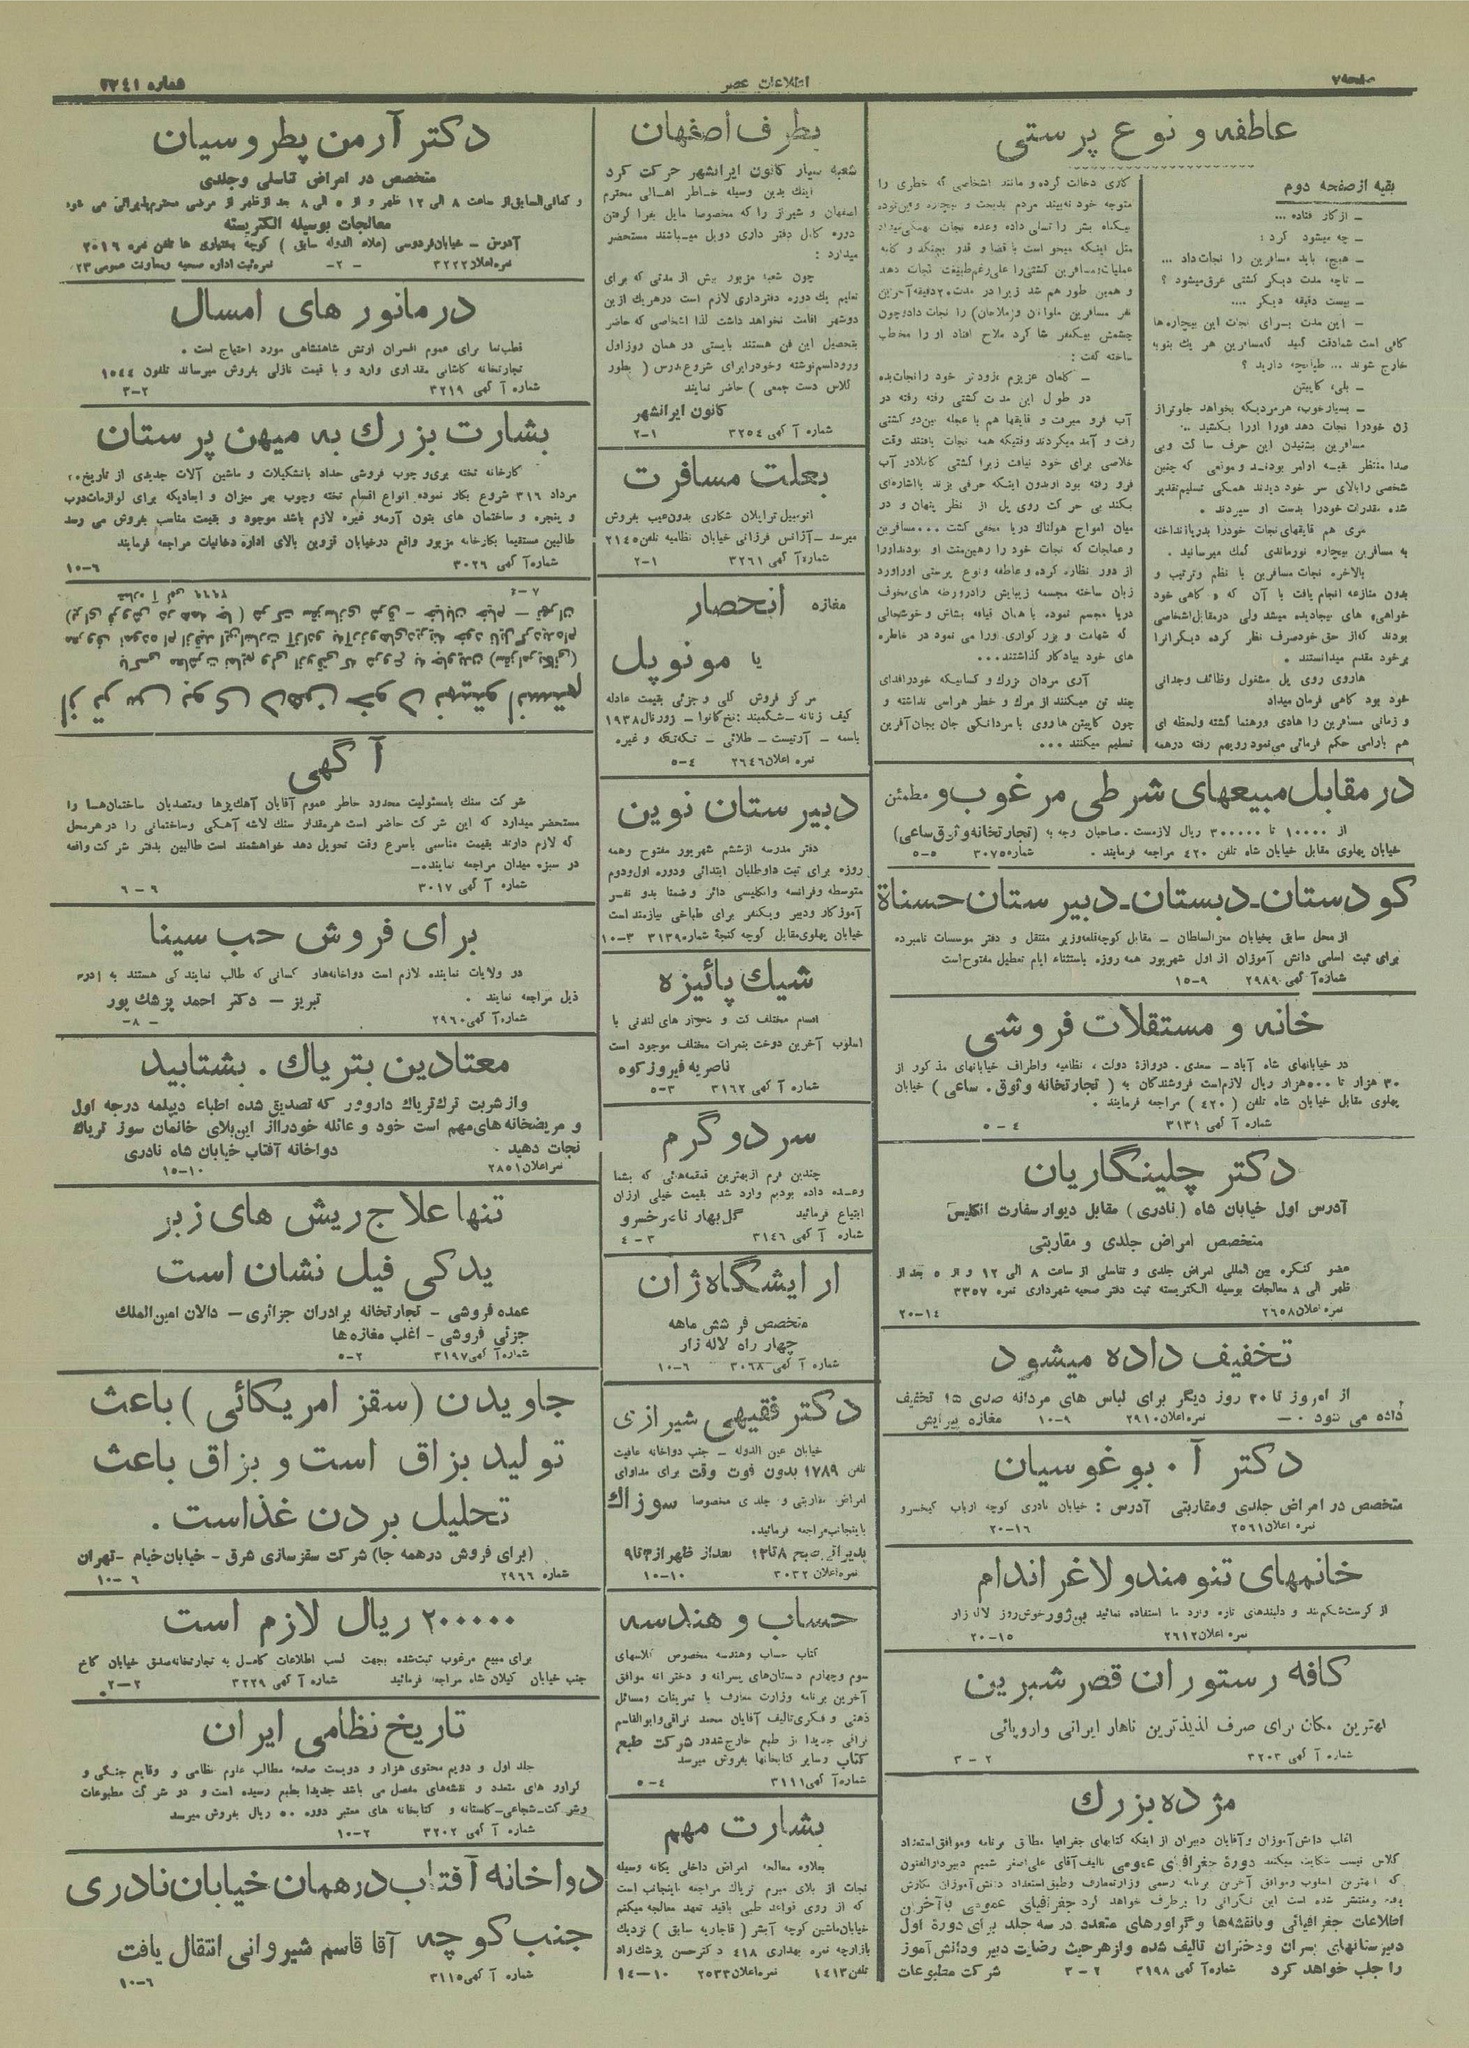 صفحه ۷
اطلاعات عصر
شماره ۳۳۴۱
عاطفه و نوع پرستی
بقیه از صفحه دوم
ـ از کار فتاده ...
ـ چه میشود کرد :
ـ هیچ، باید مسافرین را نجات داد ...
ـ تاچه مدت دیگر کشتی غرق میشود ؟
ـ بیست دقیقه دیگر ....
ـ این مدت برای نجات این بیچاره ها
خارج شوند ... طپانچه دارید ؟
ـ بلی، کاپیتن
ـ بسیار خوب، هر مردیکه بخواهد جلوتر از
زن خود را نجات دهد فورا اورا بکشید ..
مسافرین بشنیدن این حرف ساکت و بی
شخصی را بالای سر خود دیدند همگی تسلیم تقدیر
شده مقدرات خود را بدست او سپردند .
مری هم قایقهای نجات خود را بدریا انداخته
به مسافرین بیچاره نورماندی کمک میرسانید .
بالاخره نجات مسافرین با نظم و ترتیب و
بدون منازعه انجام یافت با آن که گاهی خود
بودند که از حق خود صرف نظر کرده دیگرانرا
بر خود مقدم میدانستند .
هاروی روی پل مشغول وظائف وجدانی
خود بود گاهی فرمان میداد
و زمانی مسافرین را هادی و رهنما گشته ولحظه ای
هم بارامی حکم فرمائی می نمود رویهم رفته در همه
کاری دخالت کرده و مانند اشخاصی که خطری را
مثل اینکه میخواست با قضا و قدر بجنگد و کلیه
عملیات مسافرین کشتی را علی رغم طبیعت نجات دهد
و همین طور هم شد زیرا در مدت ۲۰ دقیقه آخرین
نفر مسافرین ملوانان و (ملاحان) را نجات داد و چون
چشمش بیکنفر شاگرد ملاح افتاد او را مخاطب
ساخته گفت :
ـ کلمان عزیزم بزودتر خود را نجات بده
در طول این مدت کشتی رفته رفته در
آب فرو میرفت و قایقها هم با عجله بین دو کشتی
رفت و آمد میکردند وقتیکه همه نجات یافتند وقت
خلاصی برای خود نیافت زیرا کشتی کاملا در آب
فرو رفته بود او بدون اینکه حرفی بزند با اشاره ای
میان امواج هولناک دریا مخفی گشت ... مسافرین
و عملجات که نجات خود را رهین منت او بودند اورا
از دور نظاره کرده و عاطفه و نوع پرستی اورا ورد
زبان ساخته مجسمه زیبایش را در ورطه های مخوف
دریا مجسم نمود. با همان قیافه بشاش و خوشحالی
که شهامت و بزرگواری اورا می نمود در خاطره
های خود بیادگار گذاشتند ...
آری مردان بزرگ و کسانیکه خود را فدای
چند تن میکنند از مرگ و خطر هراسی نداشته و
چون کاپیتن هاروی با مردانگی جان بجان آفرین
تسلیم میکنند ...
در مقابل مبیعهای شرطی مرغوب و مطمئن
از ۱۰۰۰۰ تا ۳۰۰۰۰۰ ریال لازمست . صاحبان وجه به (تجارتخانه وثوق ساعی)
خیابان پهلوی مقابل خیابان شاه تلفن ۴۲۰ مراجعه فرمایند . شماره ۳۰۷۵ ۵-۵
کودستان ـ دبستان ـ دبیرستان حسناة
از محل سابق بخیابان معزالسلطان ـ مقابل کوچه قلعه وزیر منتقل و دفتر موسسات نامبرده
برای ثبت اسامی دانش آموزان از اول شهریور همه روزه باستثناء ایام تعطیل مفتوح است
شماره آگهی ۲۹۸۹ ۹-۱۵
خانه و مستقلات فروشی
در خیابانهای شاه آباد ـ سعدی . دروازه دولت ، نظامیه و اطراف خیابانهای مذکور از
۳۰ هزار تا ۵۰۰ هزار ریال لازم است فروشندگان به ( تجارتخانه وثوق . ساعی ) خیابان
پهلوی مقابل خیابان شاه تلفن ( ۴۲۰ ) مراجعه فرمایند .
شماره آگهی ۳۱۳۱ ۴ - ۵
دکتر چلینگاریان
آدرس اول خیابان شاه ( نادری ) مقابل دیوار سفارت انگلیس
متخصص امراض جلدی و مقاربتی
عضو کنگره بین المللی امراض جلدی و تناسلی از ساعت ۸ الی ۱۲ و از ۵ بعد از
ظهر الی ۸ معالجات بوسیله الکتریسته ثبت دفتر صحیه شهرداری نمره ۳۳۵۷
نمره اعلان ۲۶۵۸ ۱۴-۲۰
تخفیف داده میشود
از امروز تا ۲۰ روز دیگر برای لباس های مردانه صدی ۱۵ تخفیف
داده می شود ۰ ـ نمره اعلان ۲۹۱۰ ۹-۱۰ مغازه پیرایش
دکتر آ . بوغوسیان
متخصص در امراض جلدی و مقاربتی آدرس : خیابان نادری کوچه ارباب کیخسرو
نمره اعلان ۲۵۶۱ ۱۶-۲۰
خانمهای تنومند و لاغر اندام
از کرست شکم بند و دلبندهای تازه وارد ما استفاده نمائید بن ژور خوش روز لاله زار
نمره اعلان ۲۶۱۲ ۱۵-۲۰
کافه رستوران قصر شیرین
بهترین مکان برای صرف لذیذترین ناهار ایرانی و اروپائی
شماره آگهی ۳۲۰۳ ۲ - ۳
مژده بزرگ
اغلب دانش آموزان و آقایان دبیران از اینکه کتابهای جغرافیا مطابق برنامه وموافق استعداد
کلاس نیست شکایت میکنند دورۀ جغرافیای عمومی تالیف آقای علی اصغر شمیم دبیر دارالفنون
که بهترین اسلوب وموافق آخرین برنامه رسمی وزارت معارف وطبق استعداد دانش آموزان نگارش
یافته ومنتشر شده است این نگرانی را برطرف خواهد کرد جغرافیای عمومی با آخرین
اطلاعات جغرافیائی و با نقشه ها و گراورهای متعدد در سه جلد برای دورۀ اول
دبیرستانهای پسران ودختران تالیف شده و از هر حیث رضایت دبیر و دانش آموز
را جلب خواهد کرد شماره آگهی ۳۱۹۸ ۲ - ۳ شرکت مطبوعات
بطرف اصفهان
شعبه سیار کانون ایرانشهر حرکت کرد
اینک بدین وسیله خاطر اهالی محترم
اصفهان و شیراز را که مخصوصا مایل بفرا گرفتن
دوره کامل دفتر داری دوبل میباشند مستحضر
میدارد :
چون شعبه مزبور بیش از مدتی که برای
تعلیم یک دوره دفترداری لازم است در هر یک از ین
دوشهر اقامت نخواهد داشت لذا اشخاصی که حاضر
بتحصیل این فن هستند بایستی در همان روز اول
ورود اسم نوشته و خود را برای شروع درس ( بطور
کلاس دست جمعی ) حاضر نمایند
کانون ایرانشهر
شماره آگهی ۳۲۵۴ ۱-۲
بعلت مسافرت
اتومبیل ترایلان شکاری بدون عیب بفروش
میرسد ـ آژانس فرزانی خیابان نظامیه تلفن ۲۱۴۵
شماره آگهی ۳۲۶۱ ۱-۲
مغازه انحصار
یا مونوپل
مرکز فروش کلی و جزئی بقیمت عادله
کیف زنانه ـ شکمبند : نخ کانوا ـ ژورنال ۱۹۳۸
باسمه ـ آرتیست ـ طلائی ـ تکه تکه و غیره
نمره اعلان ۲۶۴۶ ۴-۵
دبیرستان نوین
دفتر مدرسه از ششم شهریور مفتوح وهمه
روزه برای ثبت داوطلبان ابتدائی و دوره اول ودوم
متوسطه و فرانسه و انگلیسی دائر و ضمنا بدو نفر
آموزگار و دبیر و یکنفر برای طباخی نیازمند است
خیابان پهلوی مقابل کوچه گنجة شماره ۳۱۳۹ ۳-۱۰
شیک پائیزه
اقسام مختلف کت و شلوار های لندنی با
اسلوب آخرین دوخت بنمرات مختلف موجود است
ناصریه فیروزکوه
شماره آگهی ۳۱۶۲ ۳-۵
سرد و گرم
چندین فرم از بهترین قمقمه هائی که بشما
وعده داده بودیم وارد شد بقیمت خیلی ارزان
ابتیاع فرمائید گل بهار ناصر خسرو
شماره آگهی ۳۱۴۶ ۳-۴
ارایشگاه ژان
متخصص فر شش ماهه
چهار راه لاله زار
شماره آگهی ۳۰۶۸ ۶-۱۰
دکتر فقیهی شیرازی
خیابان عین الدوله ـ جنب دواخانه عافیت
تلفن ۱۷۸۹ بدون فوت وقت برای مداوای
امراض مقاربتی و جلدی مخصوصا سوزاک
باینجانب مراجعه فرمائید.
پذیرائی صبح ۸ تا ۱۲ بعداز ظهر از ۳ تا ۹
نمره اعلان ۳۰۳۲ ۱۰-۱۰
حساب و هندسه
کتاب حساب وهندسه مخصوص کلاسهای
سوم وچهارم دبستان های پسرانه و دخترانه موافق
آخرین برنامه وزارت معارف با تمرینات ومسائل
ذهنی و فکری تالیف آقایان محمد نراقی و ابوالقاسم
نراقی جدیدا از طبع خارج شده در شرکت طبع
کتاب وسایر کتابخانها بفروش میرسد
شماره آگهی ۳۱۱۱ ۴-۵
بشارت مهم
بعلاوه معالجه امراض داخلی یگانه وسیله
نجات از بلای مبرم تریاک مراجعه باینجانب است
که از روی قواعد طبی باقید تعهد معالجه میکنم
خیابان ماشین کوچه آبشر ( قاجاریه سابق ) نزدیک
بازارچه نمره بهداری ۴۱۸ دکتر حسن پزشک زاد
تلفن ۱۴۱۳ نمره اعلان ۲۵۳۳ ۱۰-۱۴
دکتر آرمن پطروسیان
متخصص در امراض تناسلی وجلدی
و کمافی السابق از ساعت ۸ الی ۱۲ ظهر و از ۵ الی ۸ بعد از ظهر از مرضی محترم پذیرائی می شود
معالجات بوسیله الکتریسته
آدرس ـ خیابان فردوسی (علاء الدوله سابق ) کوچه بختیاری ها تلفن نمره ۲۰۱۶
نمره اعلان ۳۲۲۲ - ۲- نمره ثبت اداره صحیه ومعاونت عمومی ۲۳
در مانور های امسال
قطب نما برای عموم افسران ارتش شاهنشاهی مورد احتیاج است .
تجارتخانه کاشانی مقداری وارد و با قیمت نازلی بفروش میرساند تلفون ۱۵۴۴
شماره آگهی ۳۲۱۹ ۲-۳
بشارت بزرگ به میهن پرستان
کارخانه تخته بری و چوب فروشی حداد باتشکیلات و ماشین آلات جدیدی از تاریخ ۲۰
مرداد ۳۱۶ شروع بکار نموده انواع اقسام تخته وچوب بهر میزان و ابعادیکه برای لوازمات درب
و پنجره و ساختمان های بتون آرمه وغیره لازم باشد موجود و بقیمت مناسب بفروش می رسد
طالبین مستقیما بکارخانه مزبور واقع درخیابان قزوین بالای اداره دخانیات مراجعه فرمایند
شماره آگهی ۳۰۲۶ ۶-۱۰
از ترس بوی دهن خود نمیتوانستم
با کسی معاشرت نمایم ولی از وقتی که شروع به جاویدن (سقز امریکائی)
(برای فروش در همه جا) شرکت سقزسازی شرق ـ خیابان خیام ـ تهران
شماره آگهی ۲۹۶۹ ۷-۴
آگهی
شرکت سنک بامسئولیت محدود خاطر عموم آقایان آهک پزها ومتصدیان ساختمانها را
مستحضر میدارد که این شرکت حاضر است هر مقدار سنک لاشه آهکی وساختمانی را در هر محل
که لازم دارند بقیمت مناسبی باسرع وقت تحویل دهد خواهشمند است طالبین بدفتر شرکت واقعه
در سبزه میدان مراجعه نمایند ـ
شماره آگهی ۳۰۱۷ ۶ - ۶
برای فروش حب سینا
در ولایات نماینده لازم است دواخانه ها و کسانی که طالب نمایندگی هستند به آدرس
ذیل مراجعه نمایند . تبریز ـ دکتر احمد پزشک پور
شماره آگهی ۲۹۶۰ - ۸-
معتادین بتریاک . بشتابید
واز شربت ترک تریاک داروور که تصدیق شده اطباء دیپلمه درجه اول
و مریضخانه های مهم است خود و عائله خود را از این بلای خانمان سوز تریاک
نجات دهید . دواخانه آفتاب خیابان شاه نادری
نمره اعلان ۲۸۵۱ ۱۰-۱۵
تنها علاج ریش های زبر
یدکی فیل نشان است
عمده فروشی ـ تجارتخانه برادران جزائری ـ دالان امین الملک
جزئی فروشی ـ اغلب مغازه ها
شماره آگهی ۳۱۹۷ ۲-۵
جاویدن (سقز امریکائی) باعث
تولید بزاق است و بزاق باعث
تحلیل بردن غذاست .
(برای فروش درهمه جا) شرکت سقزسازی شرق ـ خیابان خیام ـ تهران
شماره ۲۹۶۶ ۶-۱۰
۲۰۰۰۰۰ ریال لازم است
برای مبیع مرغوب ثبت شده بجهت کسب اطلاعات کامل به تجارتخانه صدق خیابان کاخ
جنب خیابان گیلان شاه مراجعه فرمائید شماره آگهی ۳۲۲۹ ۲-۲
تاریخ نظامی ایران
جلد اول و دویم محتوی هزار و دویست صفحه مطالب علوم نظامی و وقایع جنگی و
گراور های متعدد و نقشه های مفصل می باشد جدیدا بطبع رسیده است و در شرکت مطبوعات
وشرکت ـ شجاعی ـ کاستانه و کتابخانه های معتبر دوره ۵۰ ریال بفروش میرسد
شماره آگهی ۳۲۰۲ ۲-۱۰
دواخانه آفتاب در همان خیابان نادری
جنب کوچه آقا قاسم شیروانی انتقال یافت
شماره آگهی ۳۱۱۵ ۶-۱۰